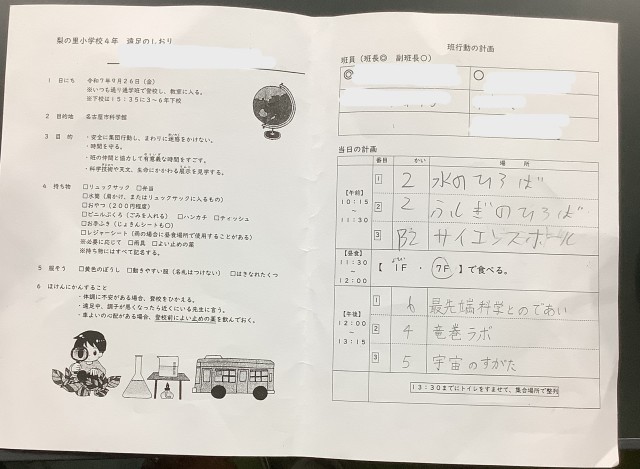 梨の里小学校4年　遠足のしおり
1 日にち　令和7年9月26日（金）
※いつも通り通学班で登校し、教室に入る。
※下校は15:35に3～6年下校
2 目的地　名古屋市科学館
3 目　的　・安全に集団行動し、まわりに迷惑をかけない。
・時間を守る。
・班の仲間と協力して有意義な時間をすごす。
・科学技術や天文、生命にかかわる展示を見学する。
4 持ち物　□リュックサック　□弁当
□水筒（肩かけ、またはリュックサックに入るもの）
□おやつ（200円程度）
□ビニルぶくろ（ごみを入れる）　□ハンカチ　□ティッシュ
□お手ふき（じょきんシートも○）
□レジャーシート（雨の場合に昼食場所で使用することがある）
※必要に応じて　□雨具　□よい止めの薬
※持ち物にはすべて記名する。
5 服そう　□黄色のぼうし　□動きやすい服（名札はつけない）　□はきなれたくつ
6 ほけんにかんすること
・体調に不安がある場合、登校をひかえる。
・遠足中、調子が悪くなったら近くにいる先生に言う。
・車よいの心配がある場合、登校前によい止めの薬を飲んでおく。
班行動の計画
班員（班長◎　副班長○）
◎　○
当日の計画
番目　かい　場　所
【午前】10:15～11:30
1　2　水のひろば
2　2　ふしぎのひろば
3　B2　サイエンスホール
【昼食】11:30～12:00　【 1F ・ 7F 】で食べる。
【午後】12:00～13:15
1　6　最先端科学とのであい
2　4　竜巻ラボ
3　5　宇宙のすがた
13:30までにトイレをすませて、集合場所で整列